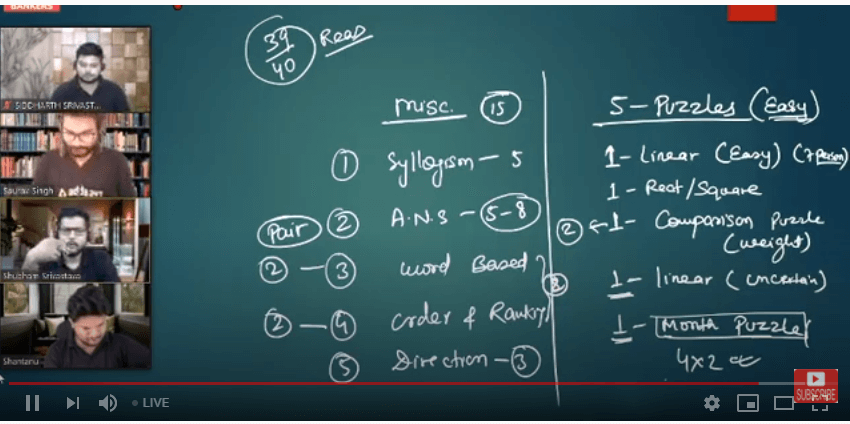 BANKERS
39
40
Reas
SIDDHARTH SRIVAST...
Saurav Singh
Shubham Srivastava
Shantanu
misc. 15
1 Syllogism - 5
Pair 2 A.N.S - 5-8
2 - 3 word Based
3
2 - 4 order & Ranking
5 Direction - 3
5 - Puzzles (Easy)
1 - Linear (Easy) (7 Person)
1 - Rect/Square
2 ← 1 - Comparison Puzzle
(weight)
1 - linear (uncertain)
1 - Month Puzzle
4x2
LIVE
SUBSCRIBE